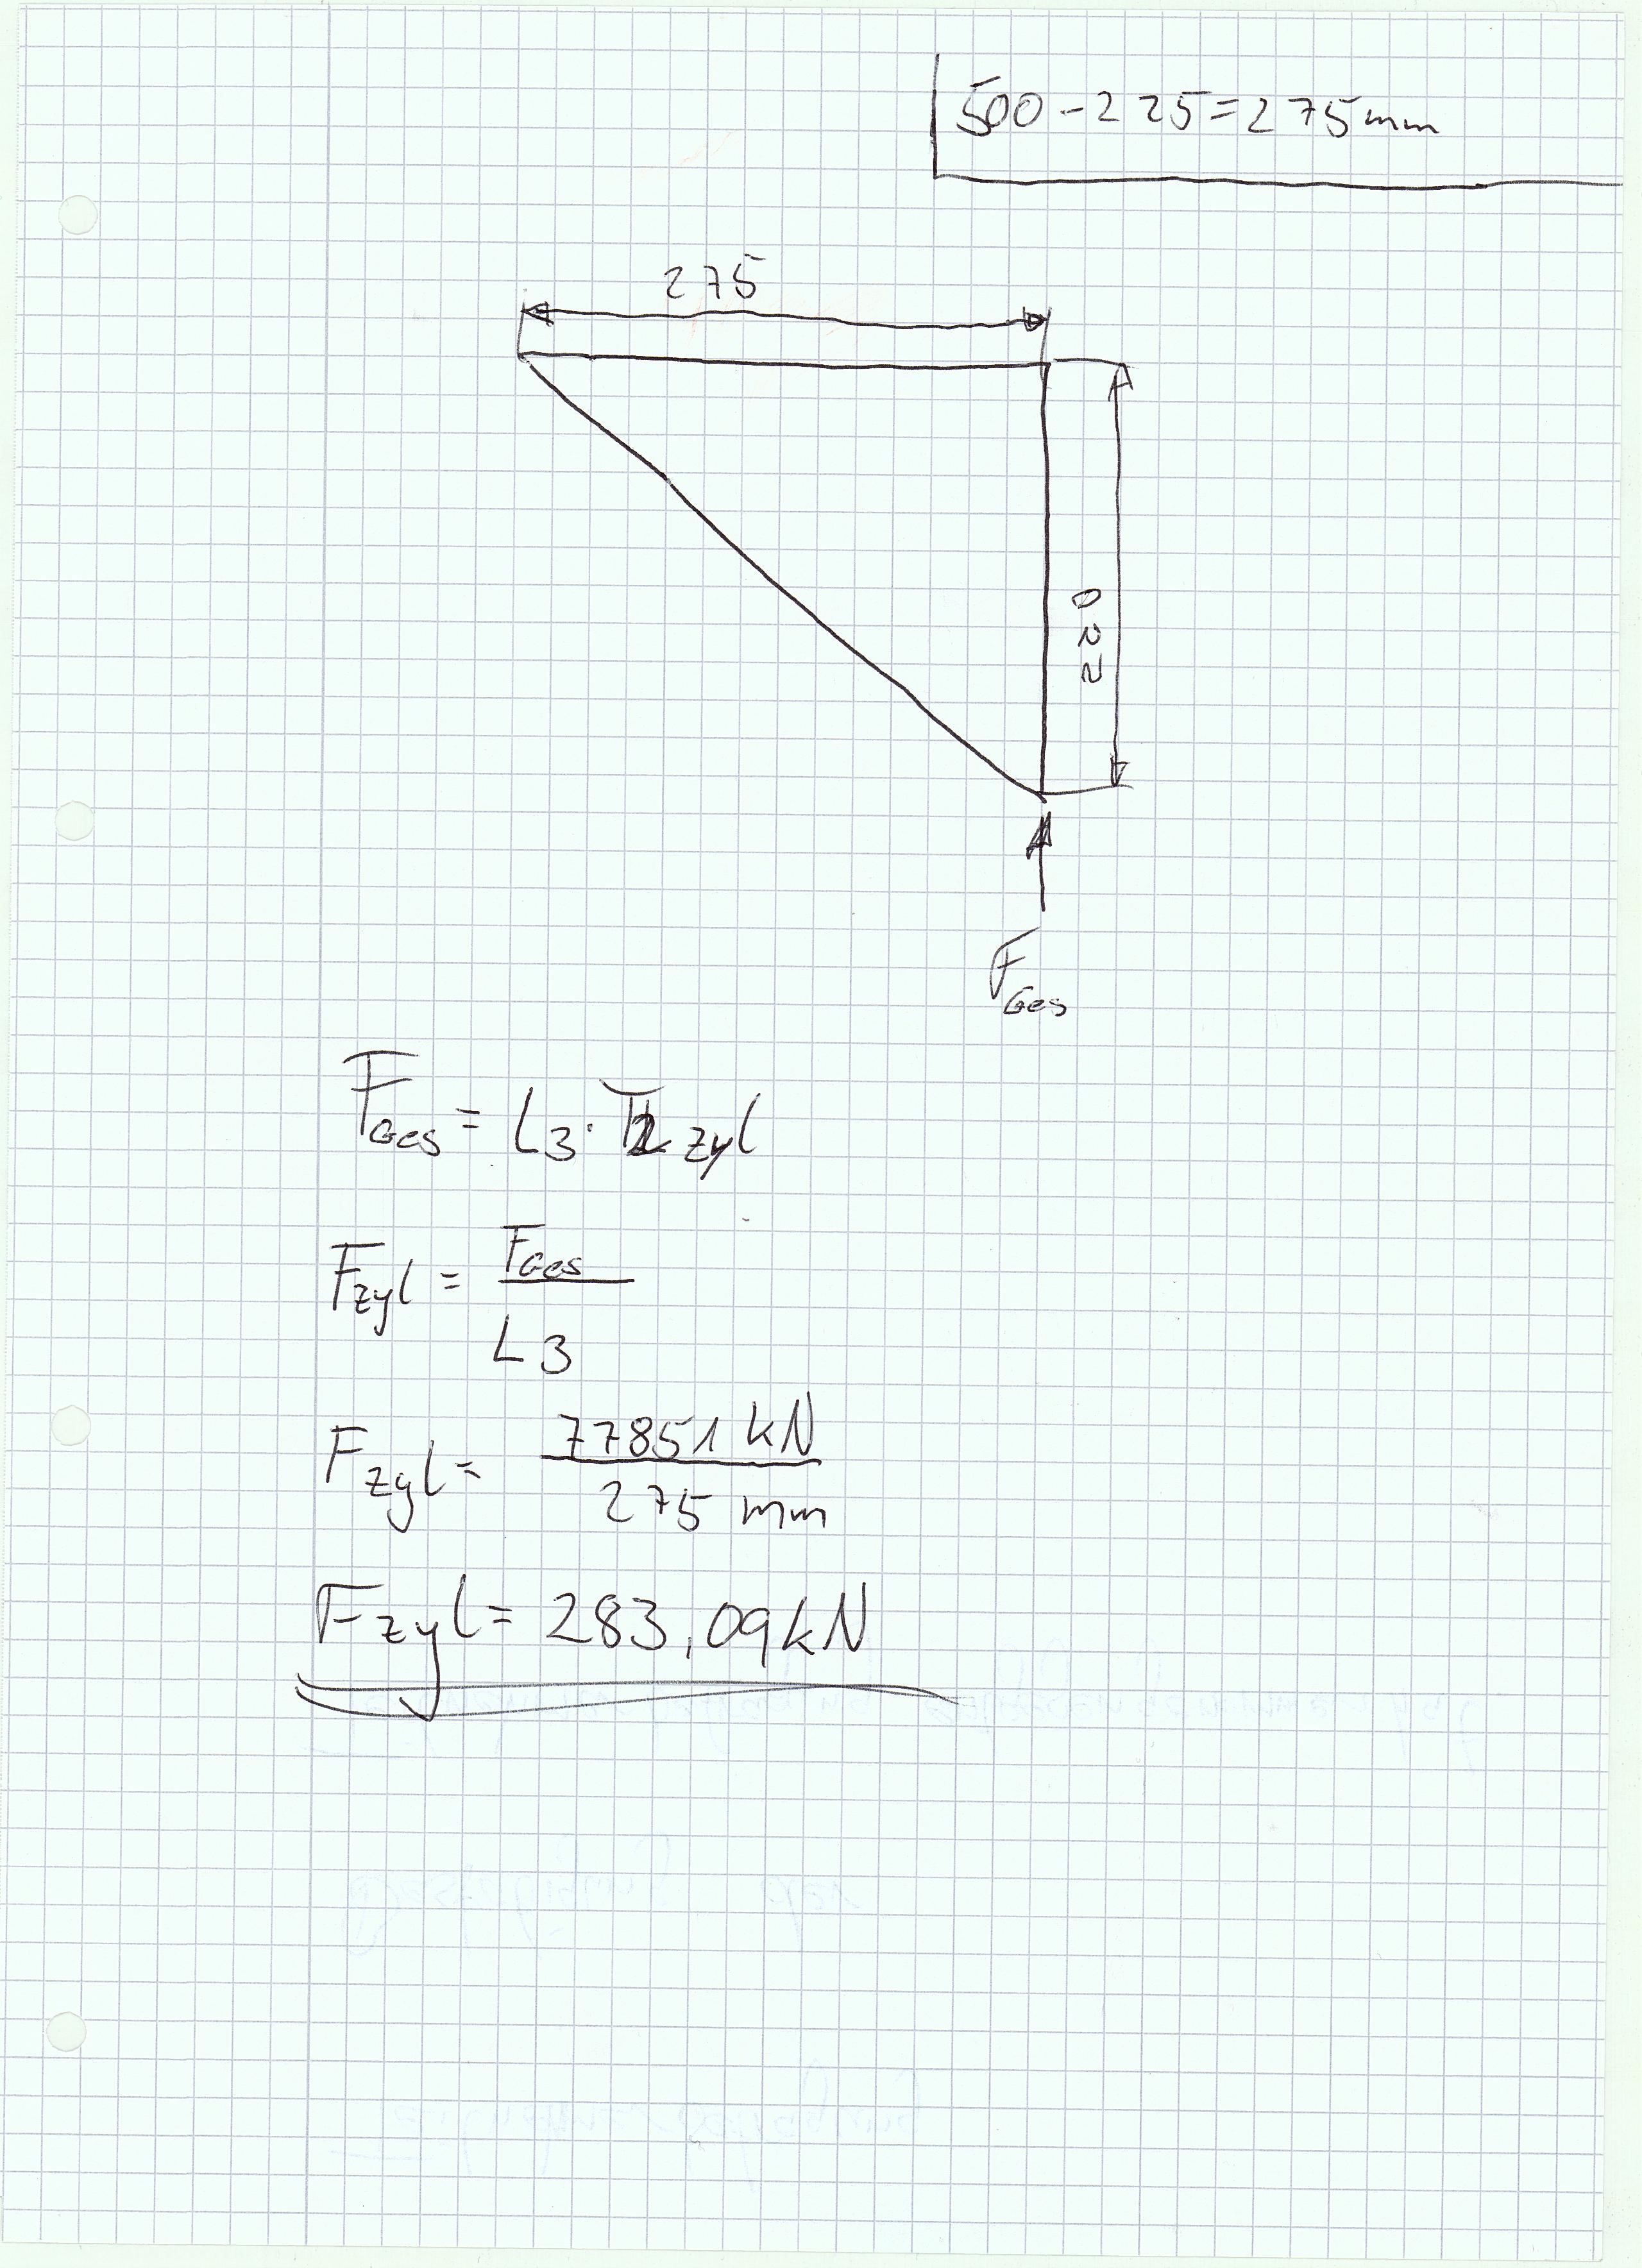 500-225=275mm
275
220
F Ges
F Ges = L3 · F zyl
Fzyl = FGes
L3
Fzyl = 77851 kN
275 mm
Fzyl = 283,09kN